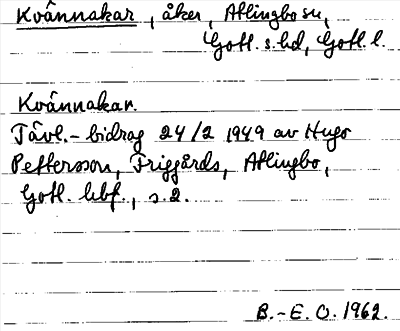 Kvânnakar, åker, Atlingbo sn,
Gotl. s. hd, Gotl. l.
Kvânnakar.
Tävl.-bidrag 24/2 1949 av Hugo
Pettersson, Friggårds, Atlingbo,
Gotl. hbf., s. 2.
B.-E. O. 1962.